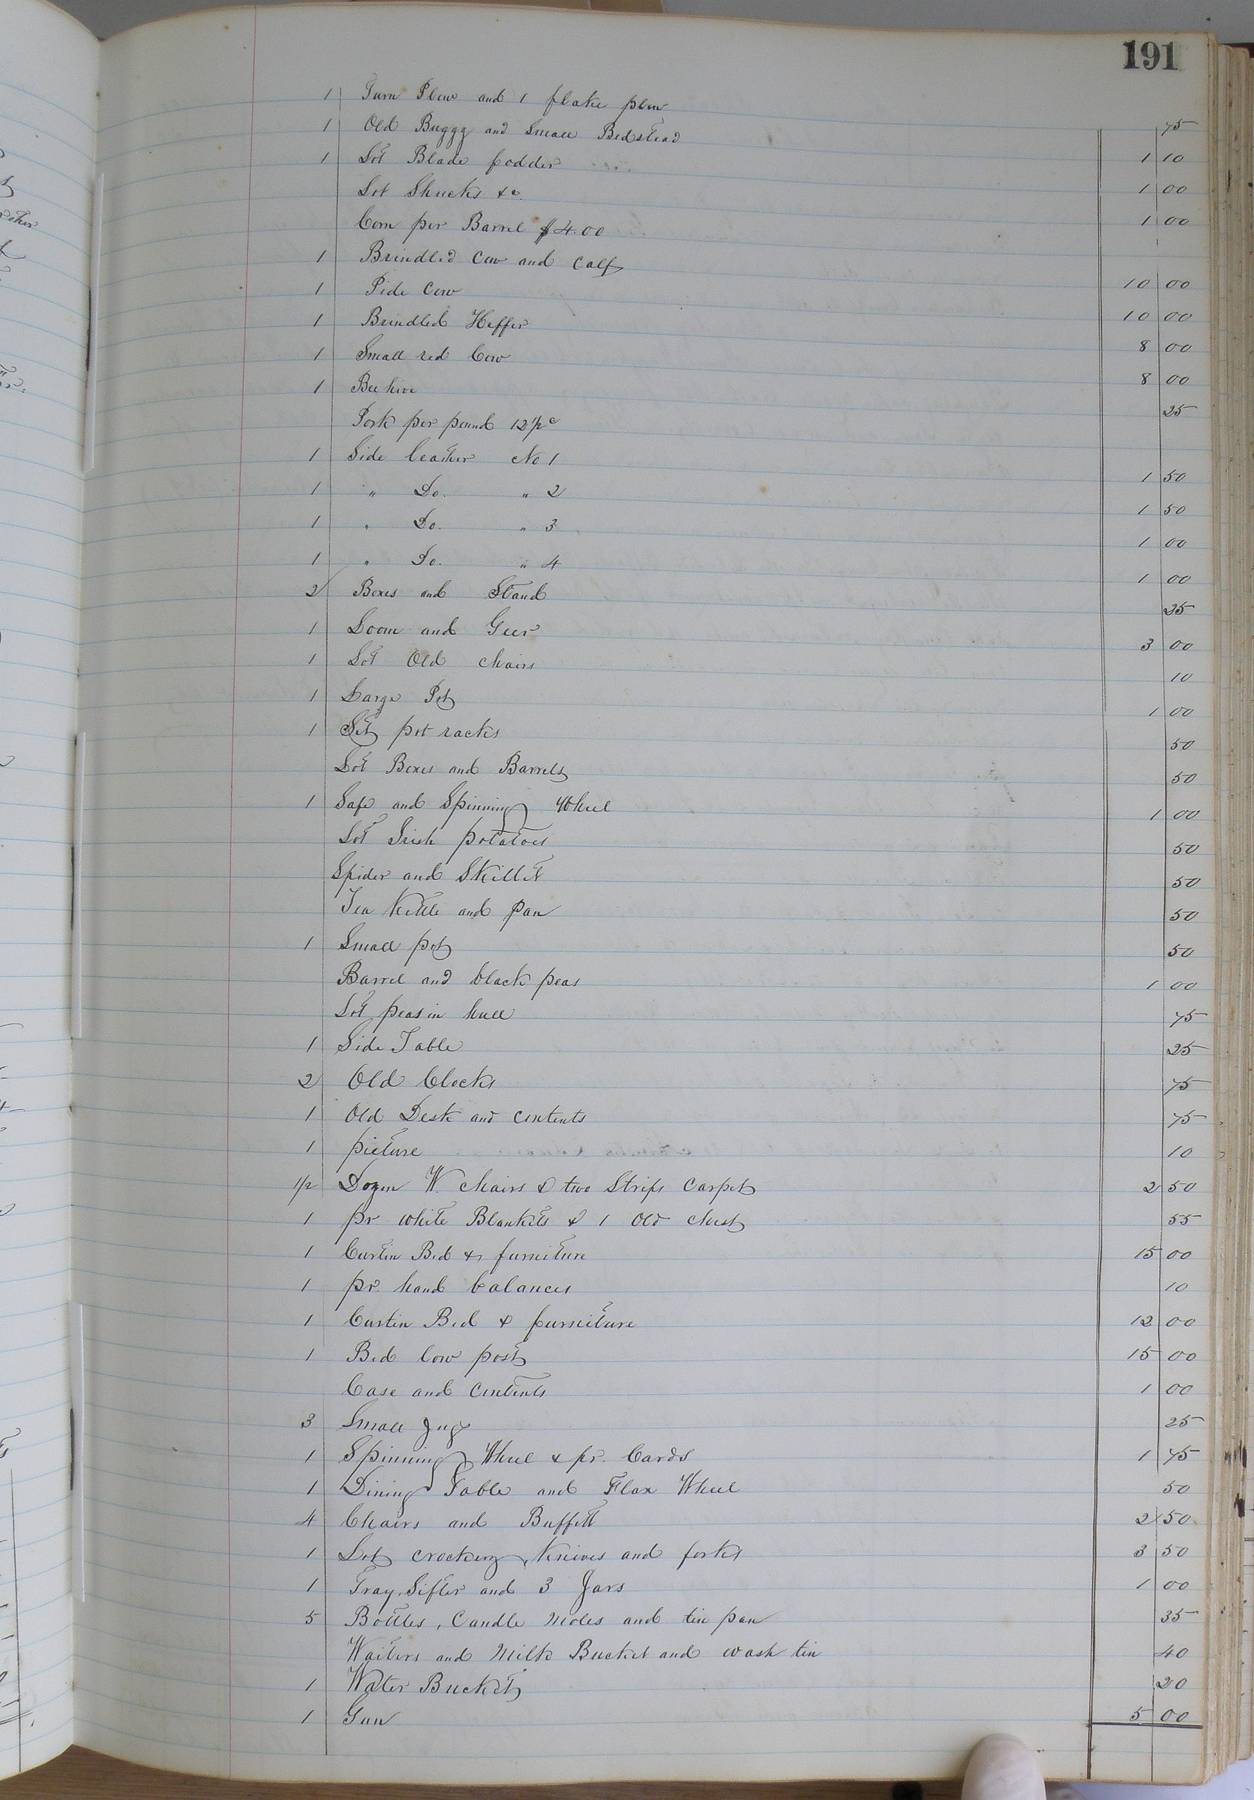 191
1 Turn Plow and 1 flake plow 75
1 Old Buggy and Small Bedstead 1 10
1 Lot Blade fodder 1 00
Lot Shucks &c. 1 00
Corn per Barrel $4.00
1 Brindled Cow and Calf 10 00
1 Pide Cow 10 00
1 Brindled Heffer 8 00
1 Small red Cow 8 00
1 Bee hive 25
Pork per pound 12½c
1 Side leather No 1 1 50
1 " Do. " 2 1 50
1 " Do. " 3 1 00
1 " Do. " 4 1 00
2 Boxes and Stand 25
1 Loom and Geer 3 00
1 Lot Old chairs 10
1 Large Pot 1 00
1 Set pot racks 50
Lot Boxes and Barrels 50
1 Safe and Spinning Wheel 1 00
Lot Irish potatoes 50
Spider and Skillet 50
Tea Kettle and pan 50
1 Small pot 50
Barrel and black peas 1 00
Lot peas in hull 75
1 Side Table 25
2 Old Clocks 75
1 Old Desk and contents 75
1 picture 10
1/2 Dozen W. chairs & two Strips Carpet 2 50
1 pr white Blankets & 1 Old chest 55
1 Curtin Bed & furniture 15 00
1 pr. hand balances 10
1 Curtin Bed & furniture 12 00
1 Bed low post 15 00
Case and contents 1 00
3 Small Jugs 25
1 Spinning Wheel & pr. Cards 1 75
1 Dining Table and Flax Wheel 50
4 Chairs and Buffett 2 50
1 Lot crockery, Knives and forks 3 50
1 Tray, Sifter and 3 Jars 1 00
5 Bottles, Candle moles and tin pan 35
Waiters and Milk Bucket and wash tin 40
1 Water Bucket 20
1 Gun 5 00